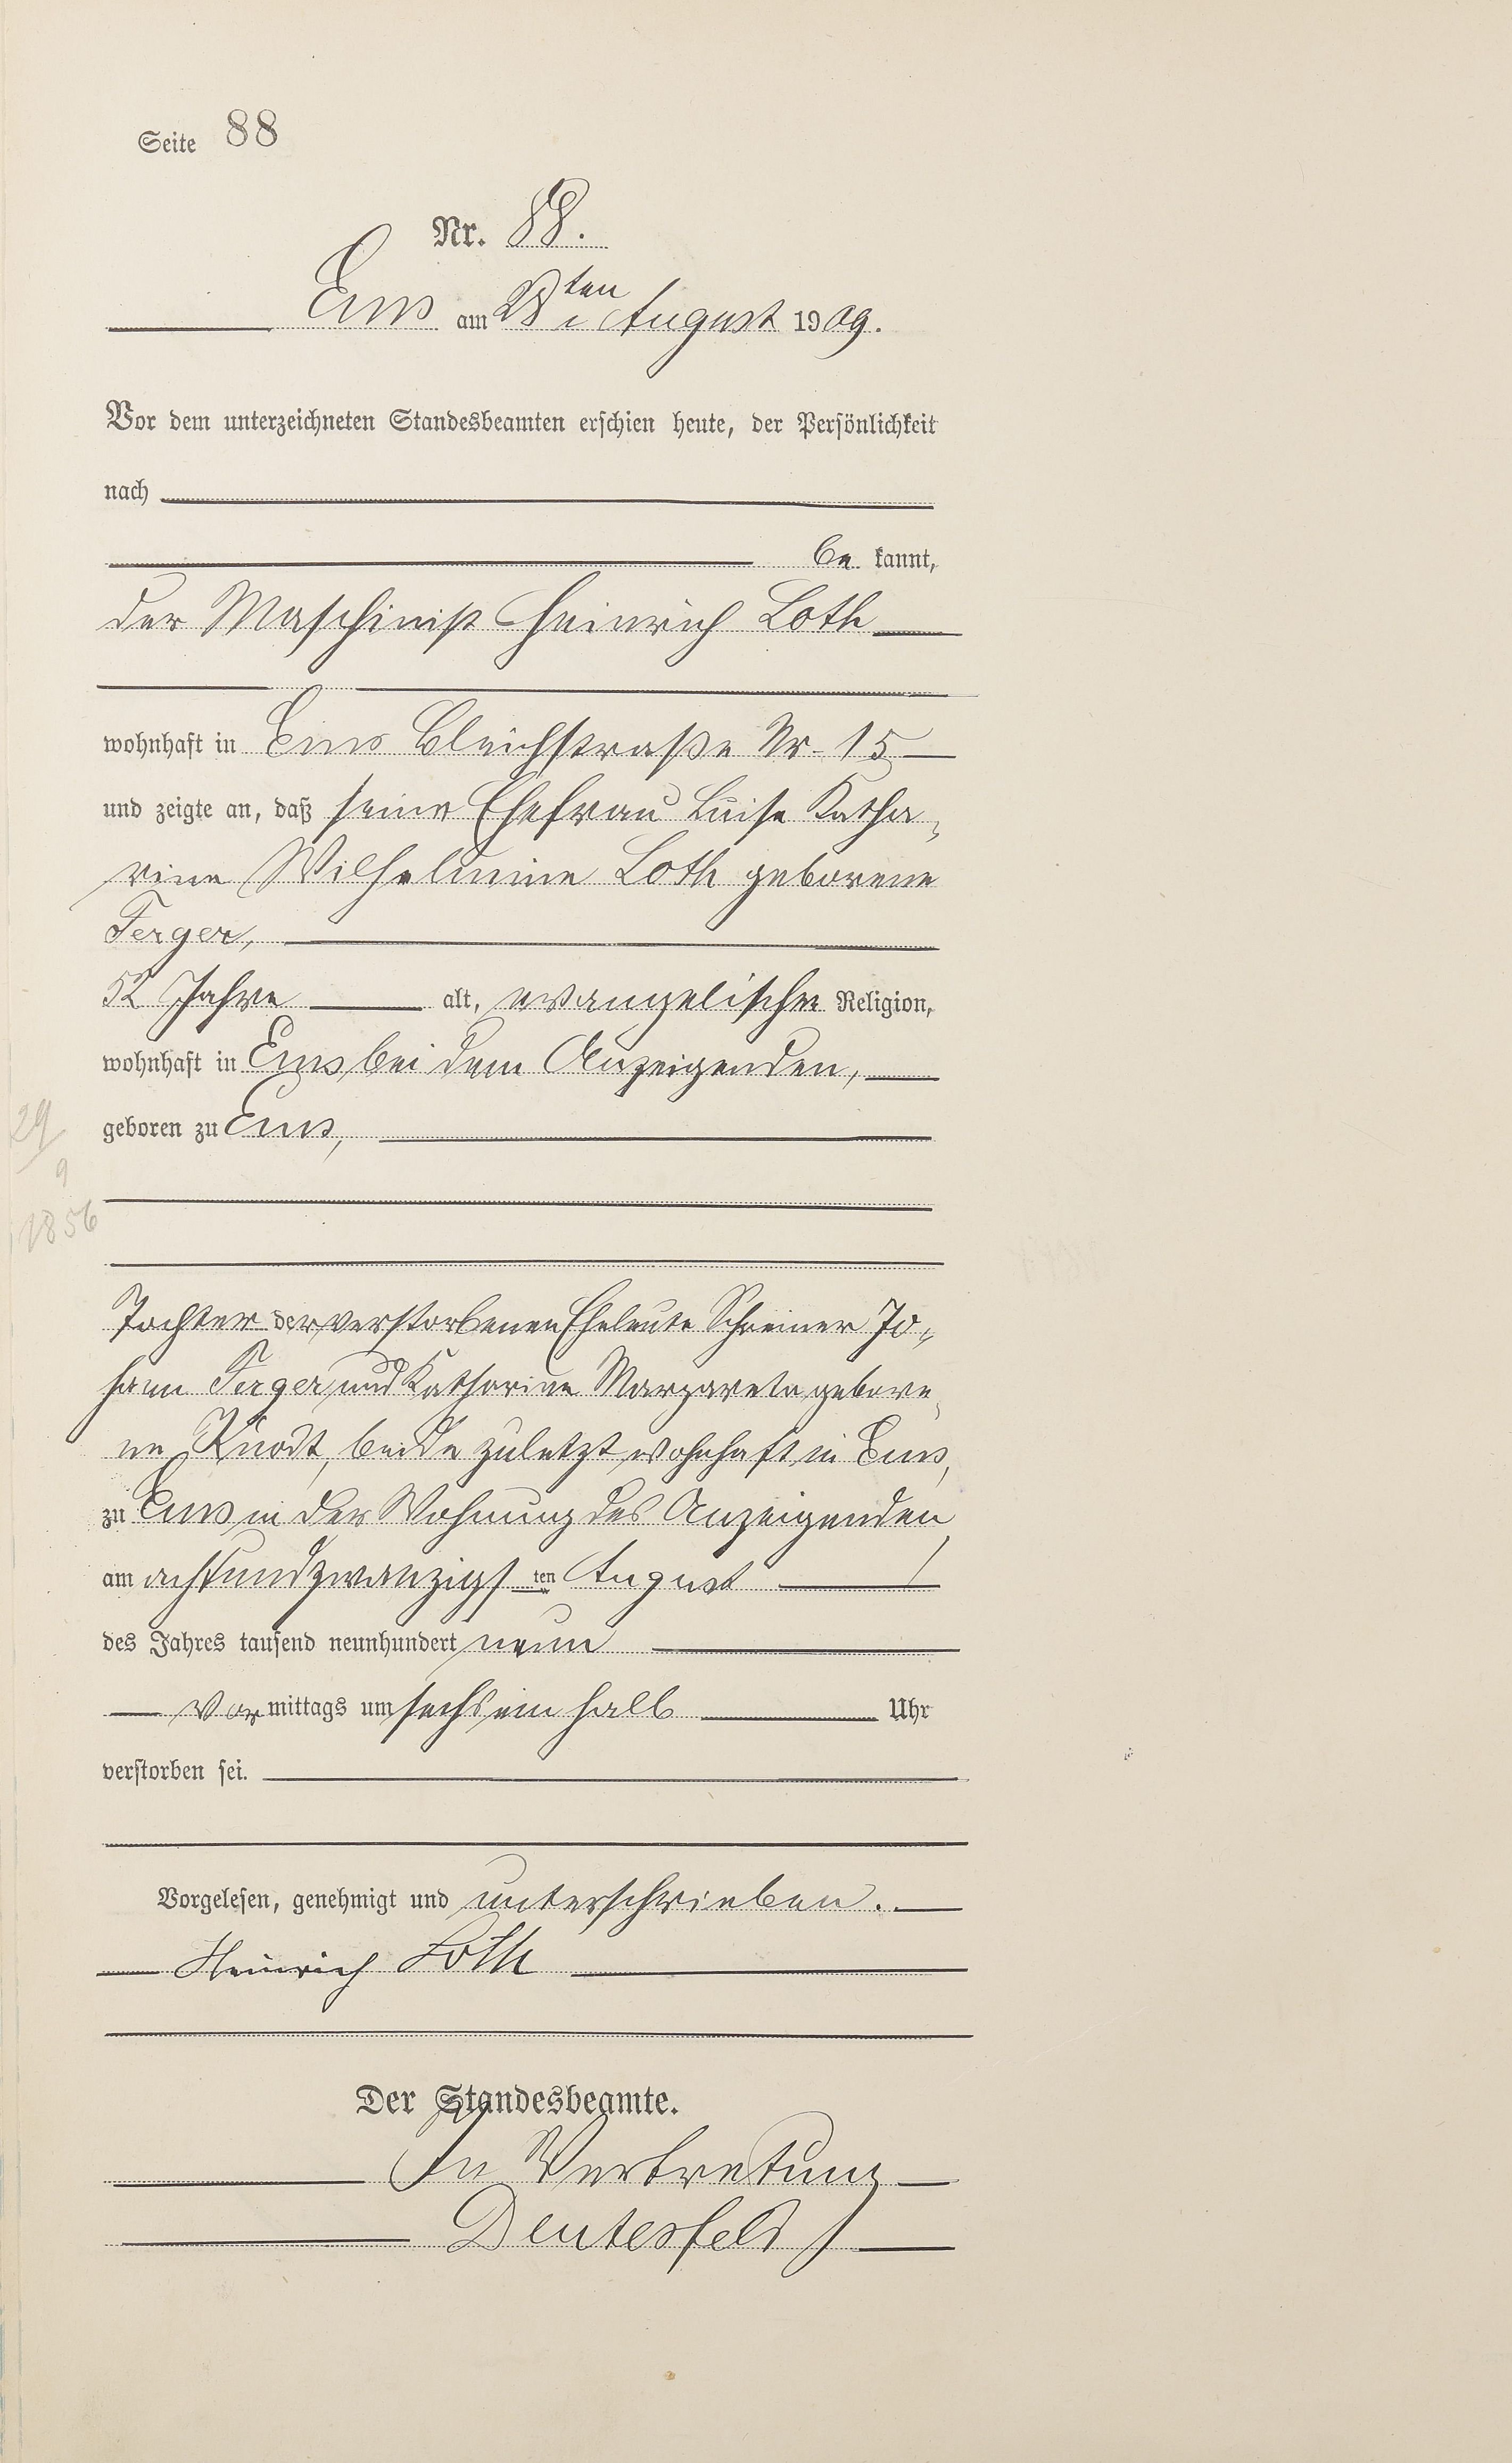 Seite 88
Nr. 88.
Ems am 28ten August 1909.
Vor dem unterzeichneten Standesbeamten erschien heute, der Persönlichkeit
nach
be kannt,
der Maschinist Heinrich Loth
wohnhaft in Ems Bleichstraße Nr. 15
und zeigte an, daß seine Ehefrau Luise Katha-
rine Wilhelmine Loth geborene
Ferger,
52 Jahre alt, evangelischer Religion,
wohnhaft in Ems bei dem Anzeigenden,
geboren zu Ems,
29
9
1856
Tochter der verstorbenen Eheleute Schreiner Jo-
hann Ferger und Katharine Margareta gebore-
ne Knodt, beide zuletzt wohnhaft in Ems,
zu Ems in der Wohnung des Anzeigenden
am achtundzwanzigsten August
des Jahres tausend neunhundert neun
Vor mittags um sechs ein halb Uhr
verstorben sei.
Vorgelesen, genehmigt und unterschrieben.
Heinrich Loth
Der Standesbeamte.
In Vertretung